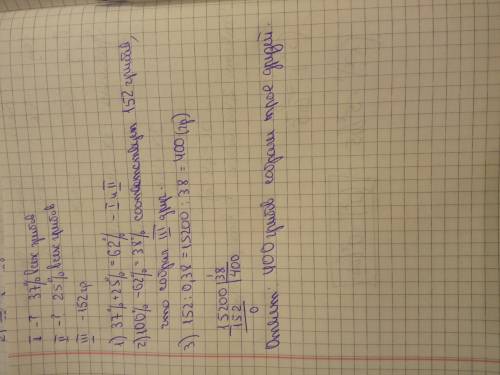 I - ? 37% всех грибов
II - ? 25% всех грибов
III - 152 гр
1) 37%+25% = 62% - I и II
2) 100% - 62% = 38% соответствует 152 грибам,
что собрал III друг.
3) 152 : 0,38 = 15200 : 38 = 400 (гр)
15200 | 38
152 | 400
0
Ответ: 400 грибов собрали трое друзей.